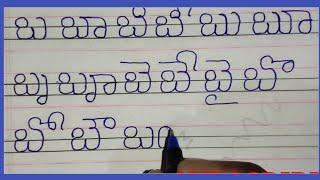 ಬ ಬಾ ಬಿ ಬೀ ಬು ಬೂ
ಬೃ ಬೄ ಬೆ ಬೇ ಬೈ ಬೊ
ಬೋ ಬೌ ಬಂ